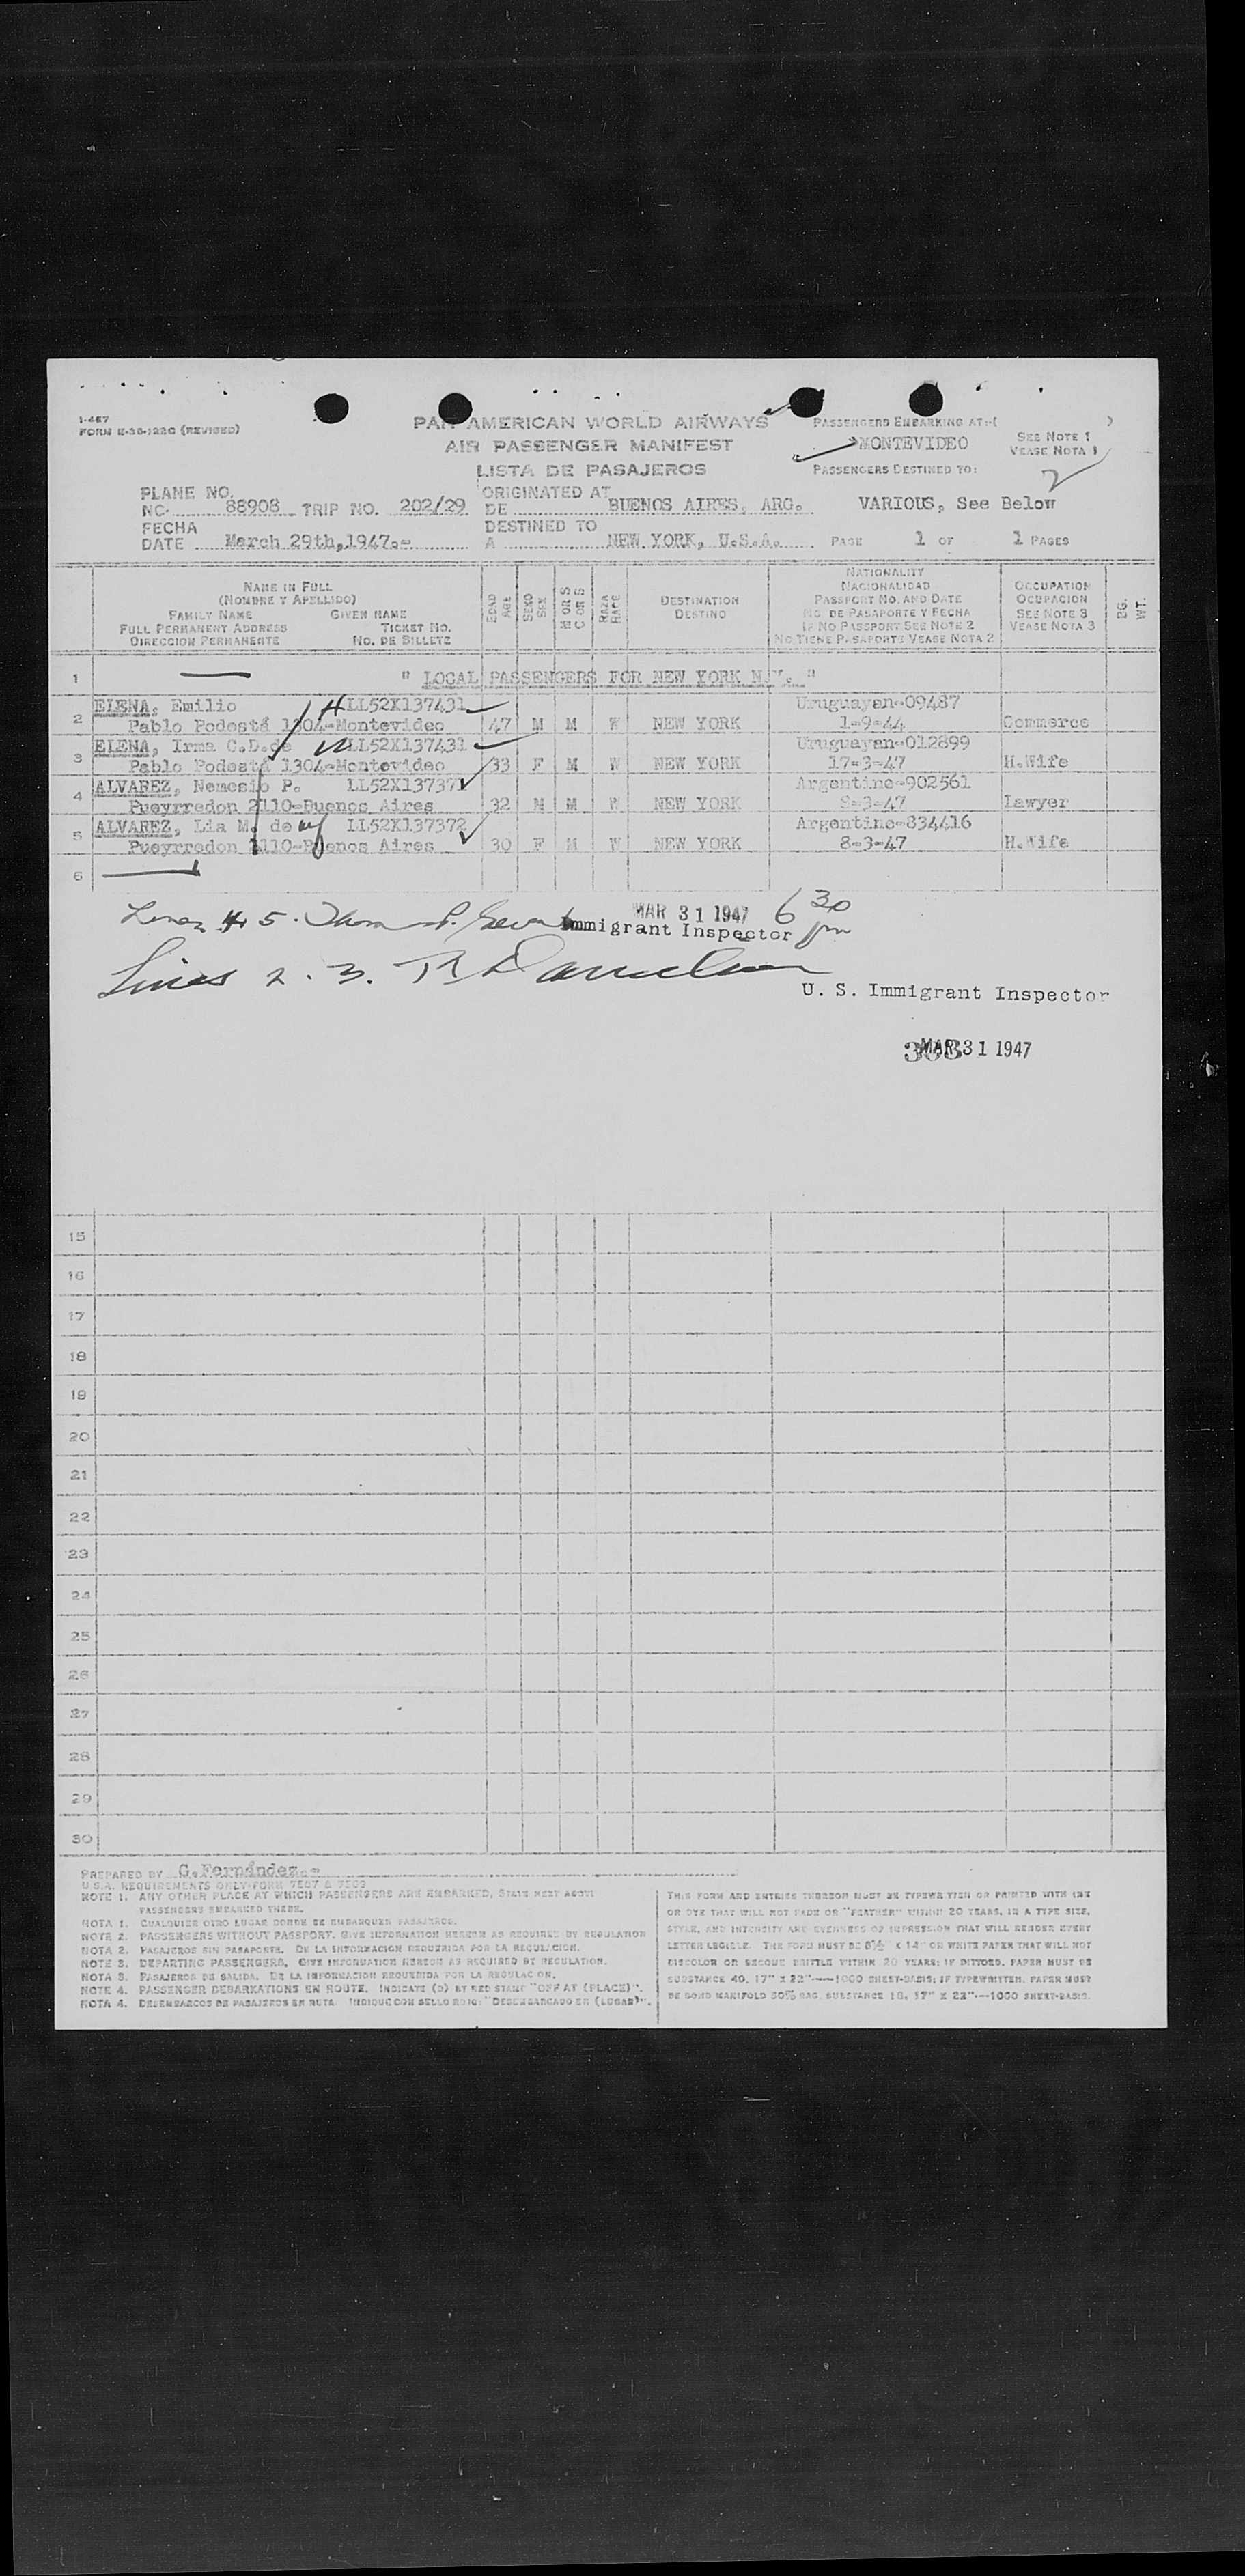 I-467
FORM E-36-122C (REVISED)
PAN AMERICAN WORLD AIRWAYS
AIR PASSENGER MANIFEST
LISTA DE PASAJEROS
PASSENGERS EMBARKING AT:-( )
MONTEVIDEO
SEE NOTE 1
VEASE NOTA 1
PASSENGERS DESTINED TO:
2
PLANE NO.
NC- 88908 TRIP NO. 202/29
ORIGINATED AT
DE BUENOS AIRES, ARG.
VARIOUS, See Below
FECHA
DATE March 29th,1947.-
DESTINED TO
A NEW YORK, U.S.A.
PAGE 1 OF 1 PAGES
NAME IN FULL
(NOMBRE Y APELLIDO)
FAMILY NAME GIVEN NAME
FULL PERMANENT ADDRESS TICKET NO.
DIRECCION PERMANENTE NO. DE BILLETE
EDAD AGE
SEXO SEX
M OR S
C OR S
RAZA RACE
DESTINATION
DESTINO
NATIONALITY
NACIONALIDAD
PASSPORT NO. AND DATE
NO. DE PASAPORTE Y FECHA
IF NO PASSPORT SEE NOTE 2
NO TIENE PASAPORTE VEASE NOTA 2
OCCUPATION
OCUPACION
SEE NOTE 3
VEASE NOTA 3
BG. WT.
1 " LOCAL PASSENGERS FOR NEW YORK N.Y. "
2 ELENA, Emilio LL52X137431 Uruguayan-09487
Pablo Podestá 1304-Montevideo 47 M M W NEW YORK 1-9-44 Commerce
3 ELENA, Irma C.D.de LL52X137431 Uruguayan-012899
Pablo Podestá 1304-Montevideo 33 F M W NEW YORK 17-3-47 H.Wife
4 ALVAREZ, Nemesio P. LL52X137371 Argentine-902561
Pueyrredon 2110-Buenos Aires 32 M M W NEW YORK 8-3-47 Lawyer
5 ALVAREZ, Lia M. de LL52X137372 Argentine-834416
Pueyrredon 2110-Buenos Aires 30 F M W NEW YORK 8-3-47 H.Wife
6
Lines 4 5. MAR 31 1947 6 30 pm
Immigrant Inspector
Lines 2. 3.
U. S. Immigrant Inspector
MAR 31 1947
15
16
17
18
19
20
21
22
23
24
25
26
27
28
29
30
PREPARED BY G.Fernández.-
U.S.A. REQUIREMENTS ONLY-FORM 7507 & 7509
NOTE 1. ANY OTHER PLACE AT WHICH PASSENGERS ARE EMBARKED, STATE NEXT ABOVE
PASSENGERS EMBARKED THERE.
NOTA 1. CUALQUIER OTRO LUGAR DONDE SE EMBARQUEN PASAJEROS.
NOTE 2. PASSENGERS WITHOUT PASSPORT. GIVE INFORMATION HEREON AS REQUIRED BY REGULATION
NOTA 2. PASAJEROS SIN PASAPORTE. DE LA INFORMACION REQUERIDA POR LA REGULACION.
NOTE 3. DEPARTING PASSENGERS. GIVE INFORMATION HEREON AS REQUIRED BY REGULATION.
NOTA 3. PASAJEROS DE SALIDA. DE LA INFORMACION REQUERIDA POR LA REGULACION.
NOTE 4. PASSENGER DEBARKATIONS EN ROUTE. INDICATE (D) BY RED STAMP "OFF AT (PLACE)".
NOTA 4. DESEMBARCOS DE PASAJEROS EN RUTA. INDIQUE CON SELLO ROJO: "DESEMBARCADO EN (LUGAR)".
THIS FORM AND ENTRIES THEREON MUST BE TYPEWRITTEN OR PRINTED WITH INK
OR DYE THAT WILL NOT FADE OR "FEATHER" WITHIN 20 YEARS, IN A TYPE SIZE,
STYLE, AND INTENSITY AND EVENNESS OF IMPRESSION THAT WILL RENDER EVERY
LETTER LEGIBLE. THE FORM MUST BE 8½ X 14" ON WHITE PAPER THAT WILL NOT
DISCOLOR OR BECOME BRITTLE WITHIN 20 YEARS; IF DITTOED, PAPER MUST BE
SUBSTANCE 40, 17" X 22"—1000 SHEET-BASIS; IF TYPEWRITTEN, PAPER MUST
BE BOND MANIFOLD 50% RAG, SUBSTANCE 18, 17" X 22"—1000 SHEET-BASIS.